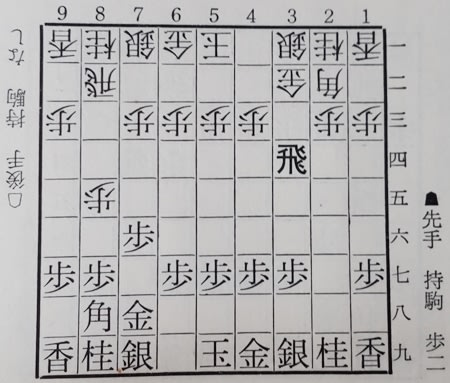 9 8 7 6 5 4 3 2 1
香 桂 銀 金 王 銀 桂 香 一
飛 金 角 二
歩 歩 歩 歩 歩 歩 歩 三
飛 四
歩 五
歩 六
歩 歩 歩 歩 歩 歩 歩 七
角 金 八
香 桂 銀 玉 金 銀 桂 香 九
☗先手 持駒 歩二
☖後手 持駒 なし